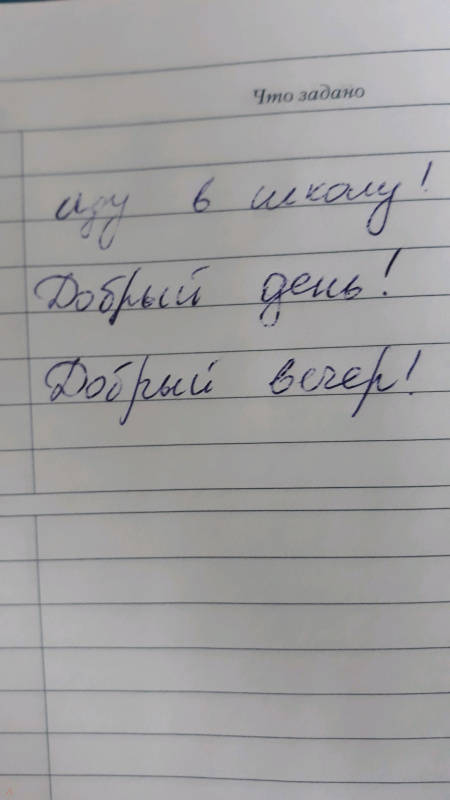 Что задано
иду в школу!
Добрый день!
Добрый вечер!